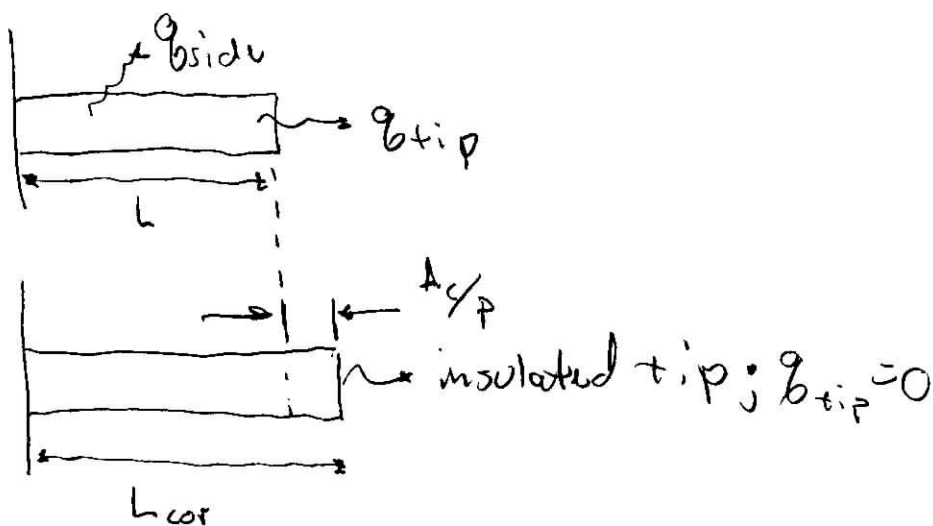 q side
q tip
L
Ac/p
insulated tip; q tip = 0
L cor